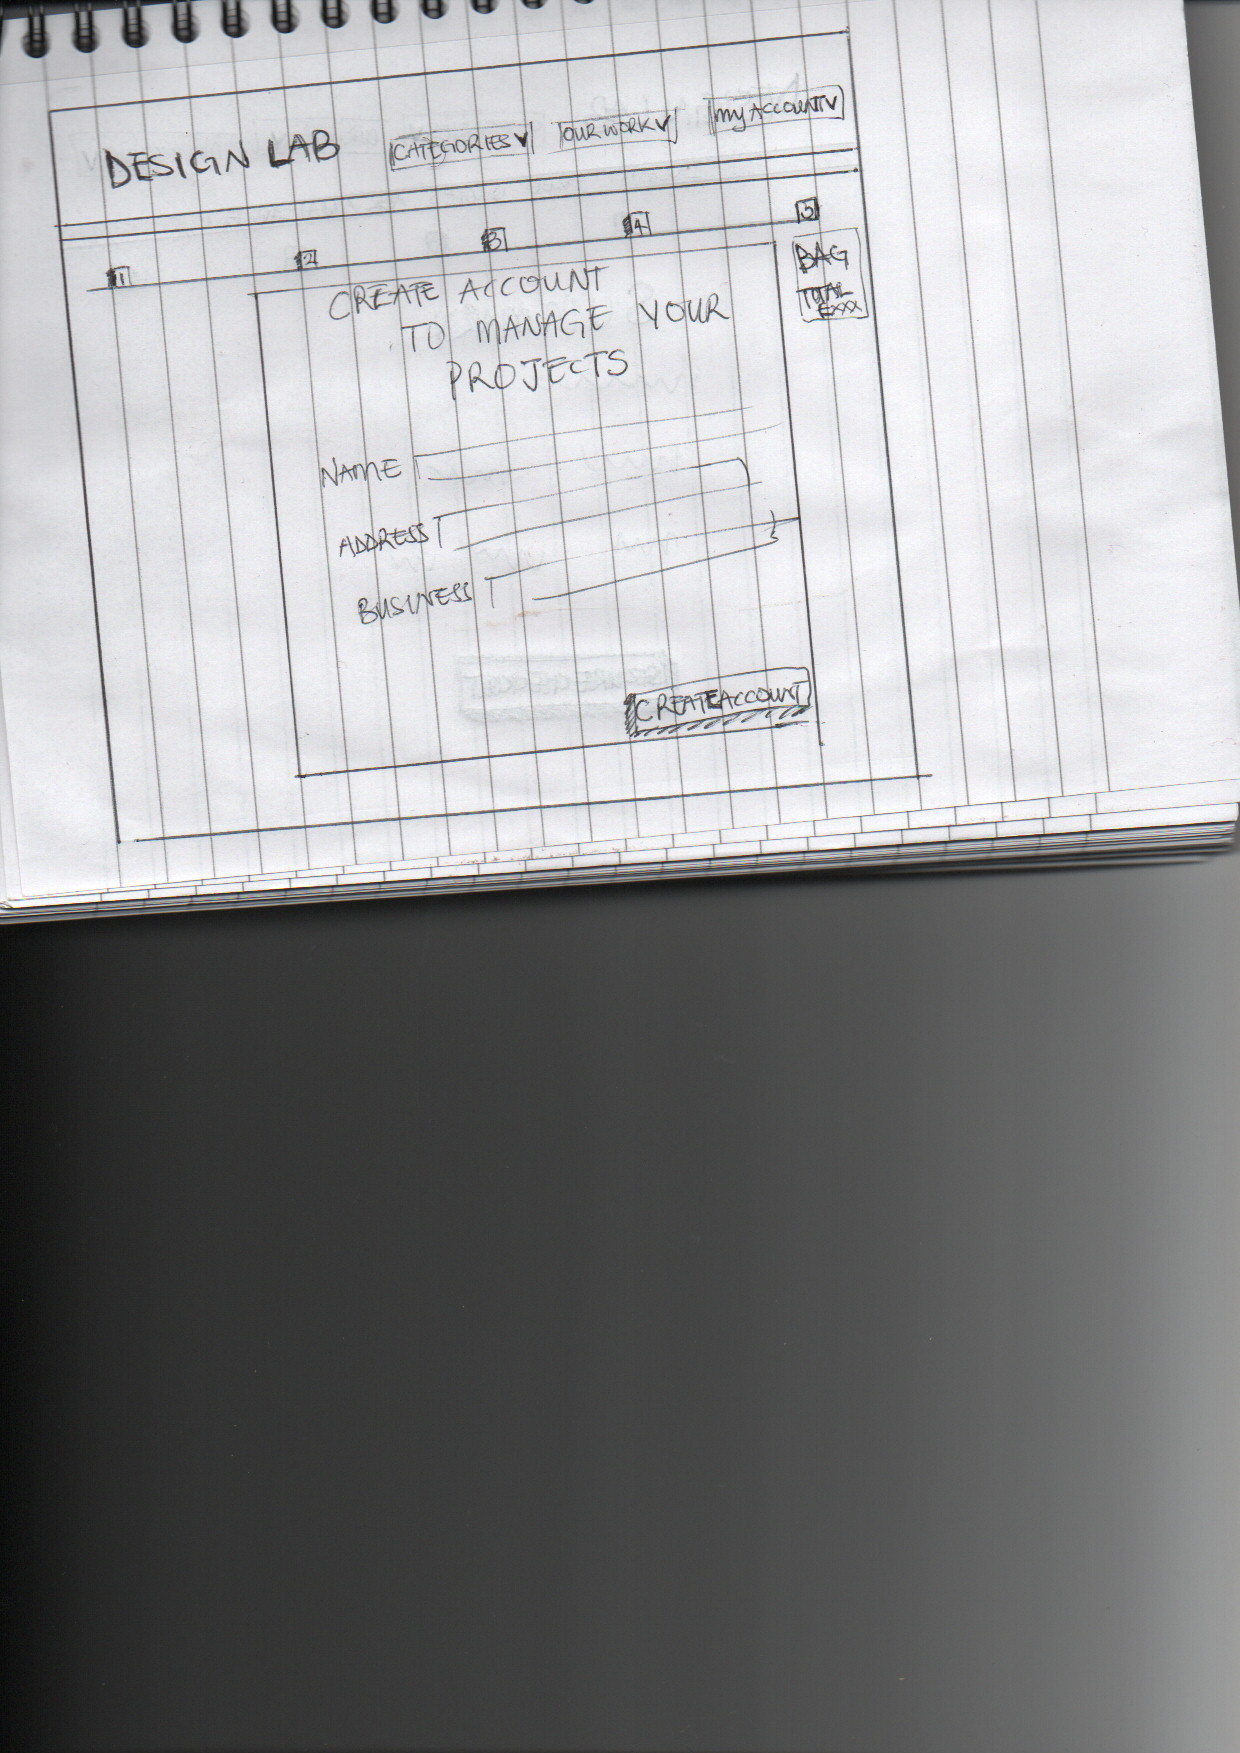 DESIGN LAB CATEGORIES OUR WORK MY ACCOUNT
1 2 3 4 5
BAG
TOTAL
£XXX
CREATE ACCOUNT
TO MANAGE YOUR
PROJECTS
NAME
ADDRESS
BUSINESS
CREATE ACCOUNT